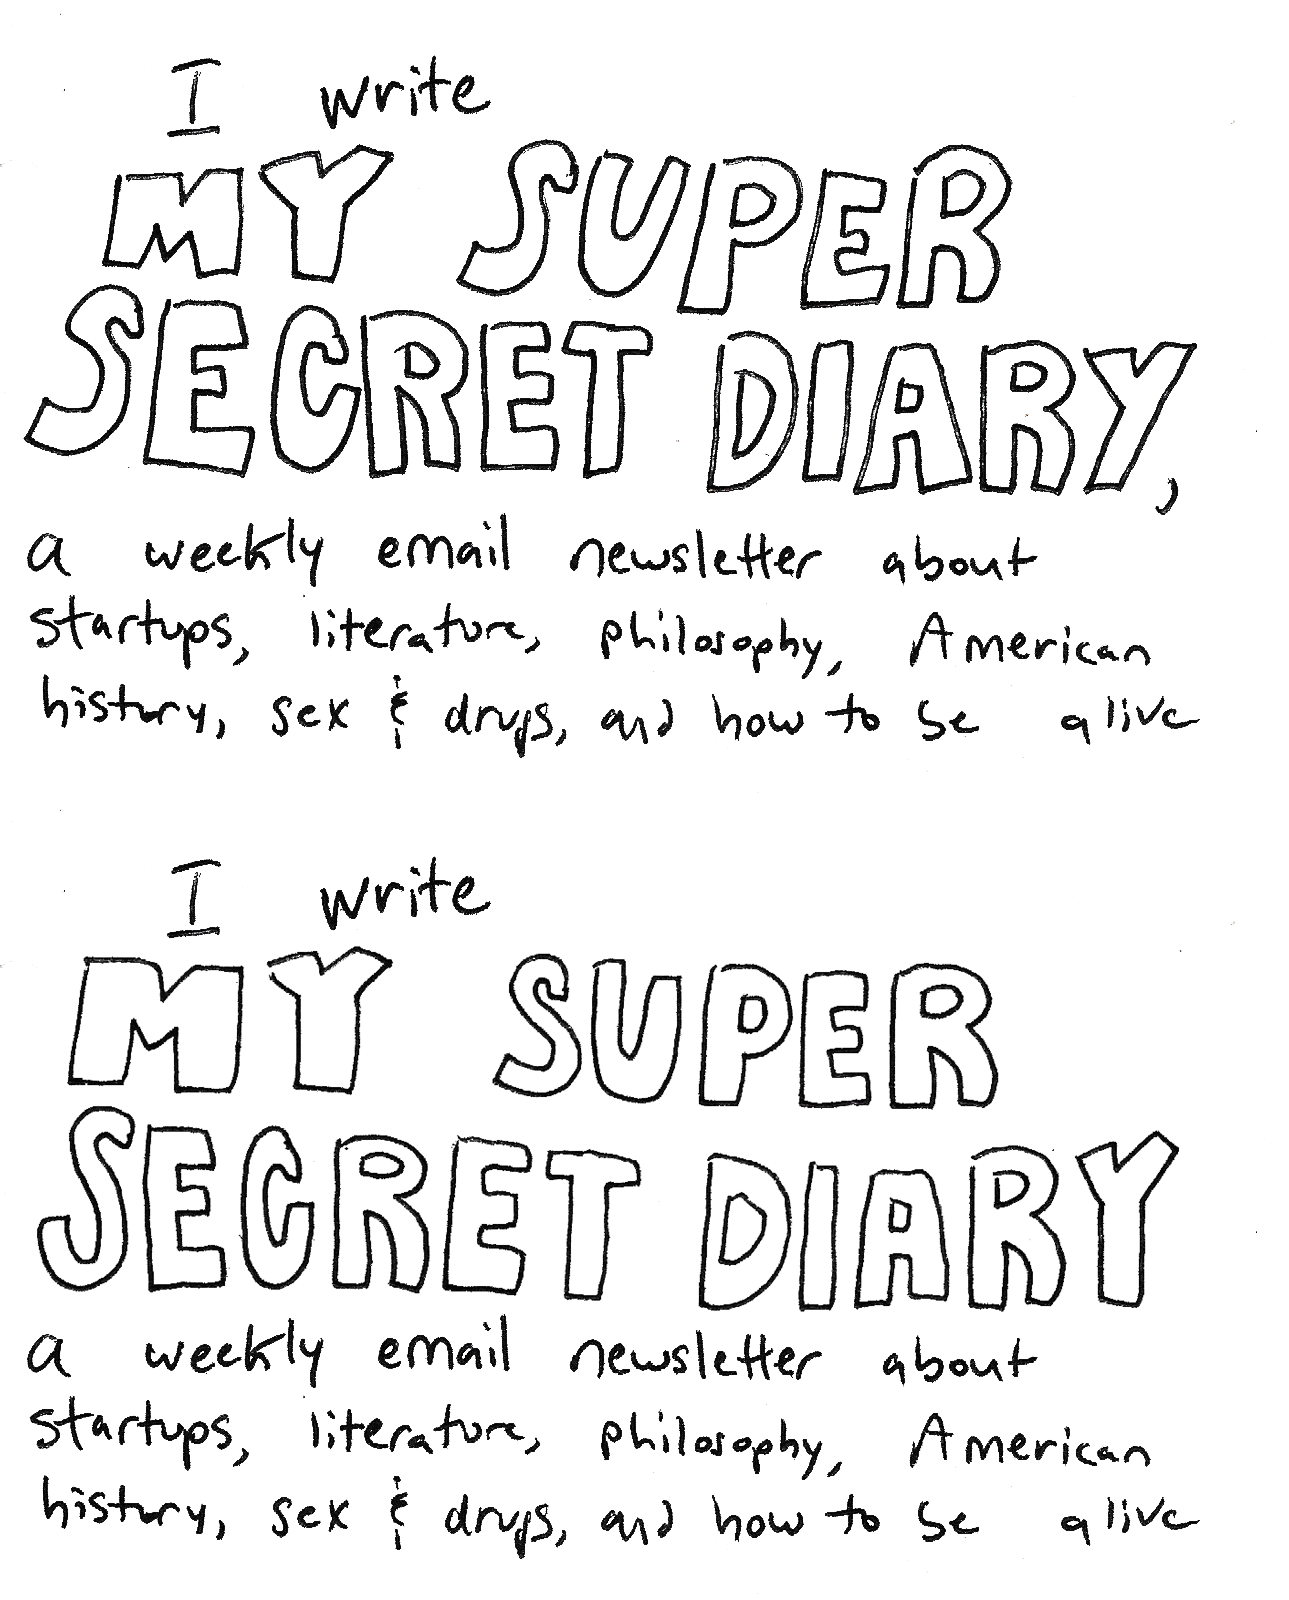 I write
MY SUPER
SECRET DIARY,
a weekly email newsletter about
startups, literature, philosophy, American
history, sex & drugs, and how to be alive
I write
MY SUPER
SECRET DIARY
a weekly email newsletter about
startups, literature, philosophy, American
history, sex & drugs, and how to be alive